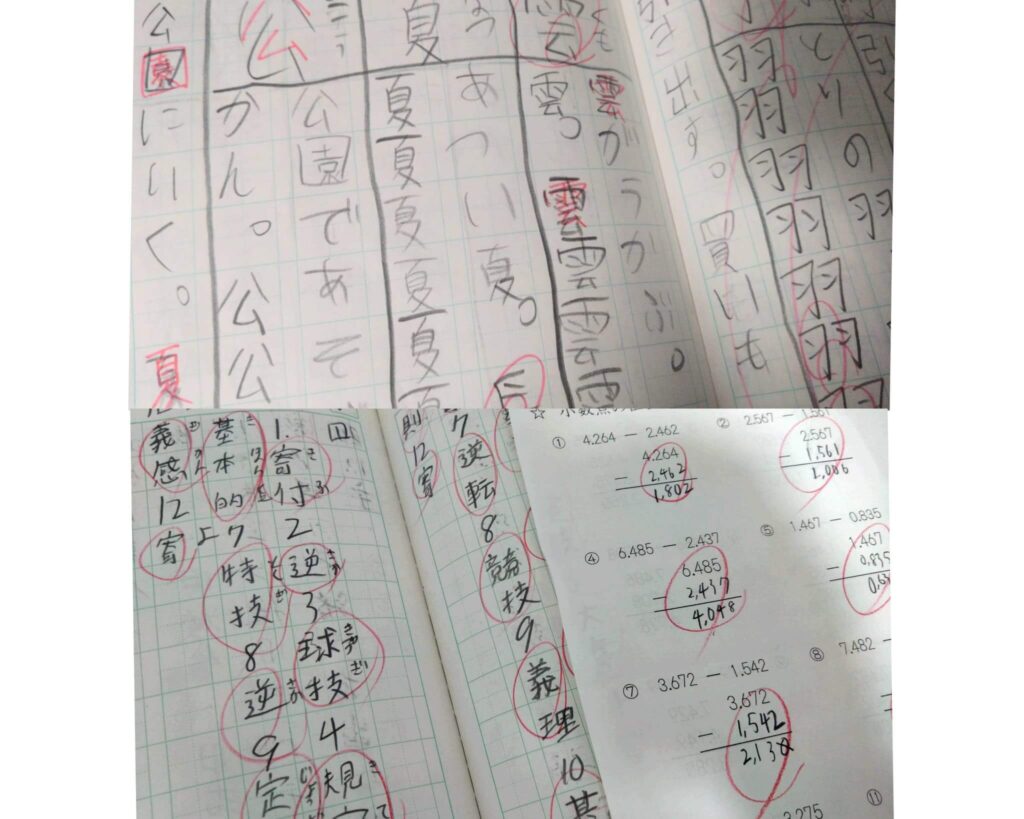 とりの羽
羽羽羽羽羽羽
引き出す。買いも
雲がうかぶ。
雲。雲雲雲雲
あつい夏。
夏
夏夏夏夏夏
公園であそ
公
かん。公公
公園にいく。夏
7逆転8競技9義理10基
則12寄
四
1.寄付2逆3球技4規
基本的7特技8逆9定
義感12寄
① 4.264 － 2.462
4.264
－ 2,462
1,802
② 2.567 － 1.561
2.567
－ 1,561
1,006
④ 6.485 － 2.437
6.485
－ 2,437
4,048
⑤ 1.467 － 0.835
1.467
－ 0,835
⑦ 3.672 － 1.542
3.672
－ 1,542
2,130
⑧ 7.482 －
⑪
3.275